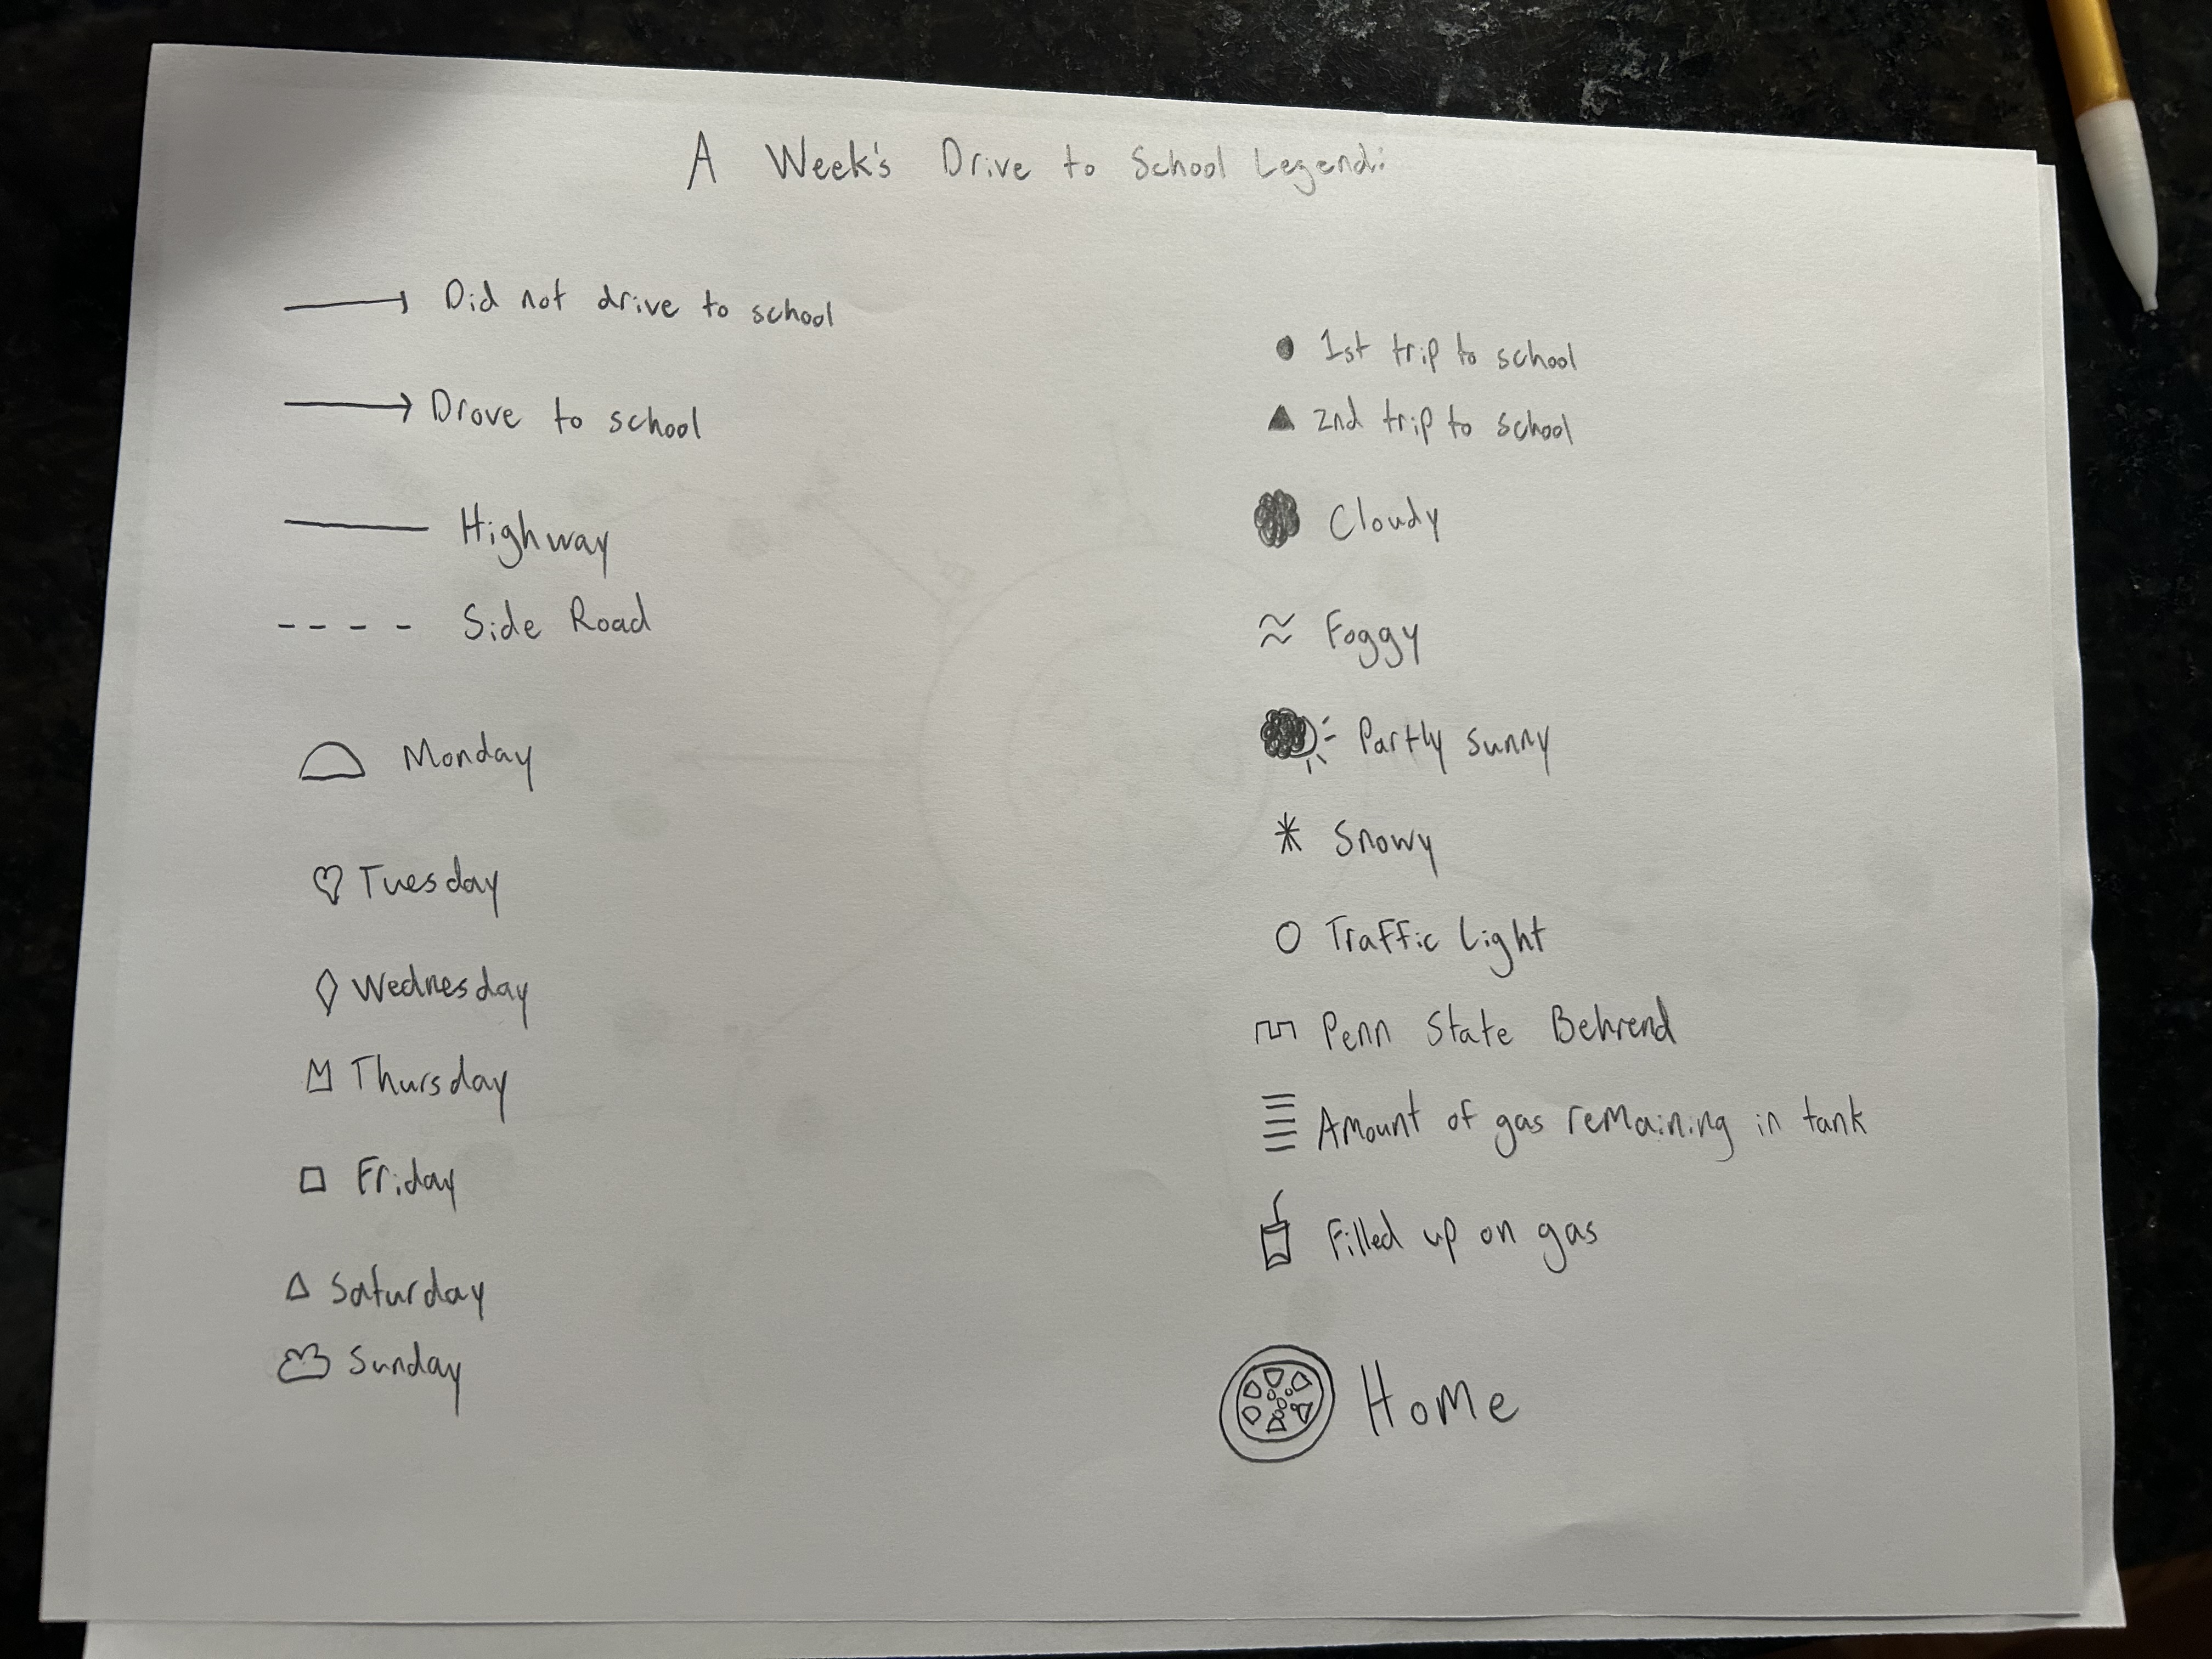 A Week's Drive to School Legend:
Did not drive to school
Drove to school
Highway
Side Road
Monday
Tuesday
Wednesday
Thursday
Friday
Saturday
Sunday
1st trip to school
2nd trip to school
Cloudy
Foggy
Partly sunny
Snowy
Traffic Light
Penn State Behrend
Amount of gas remaining in tank
Filled up on gas
Home